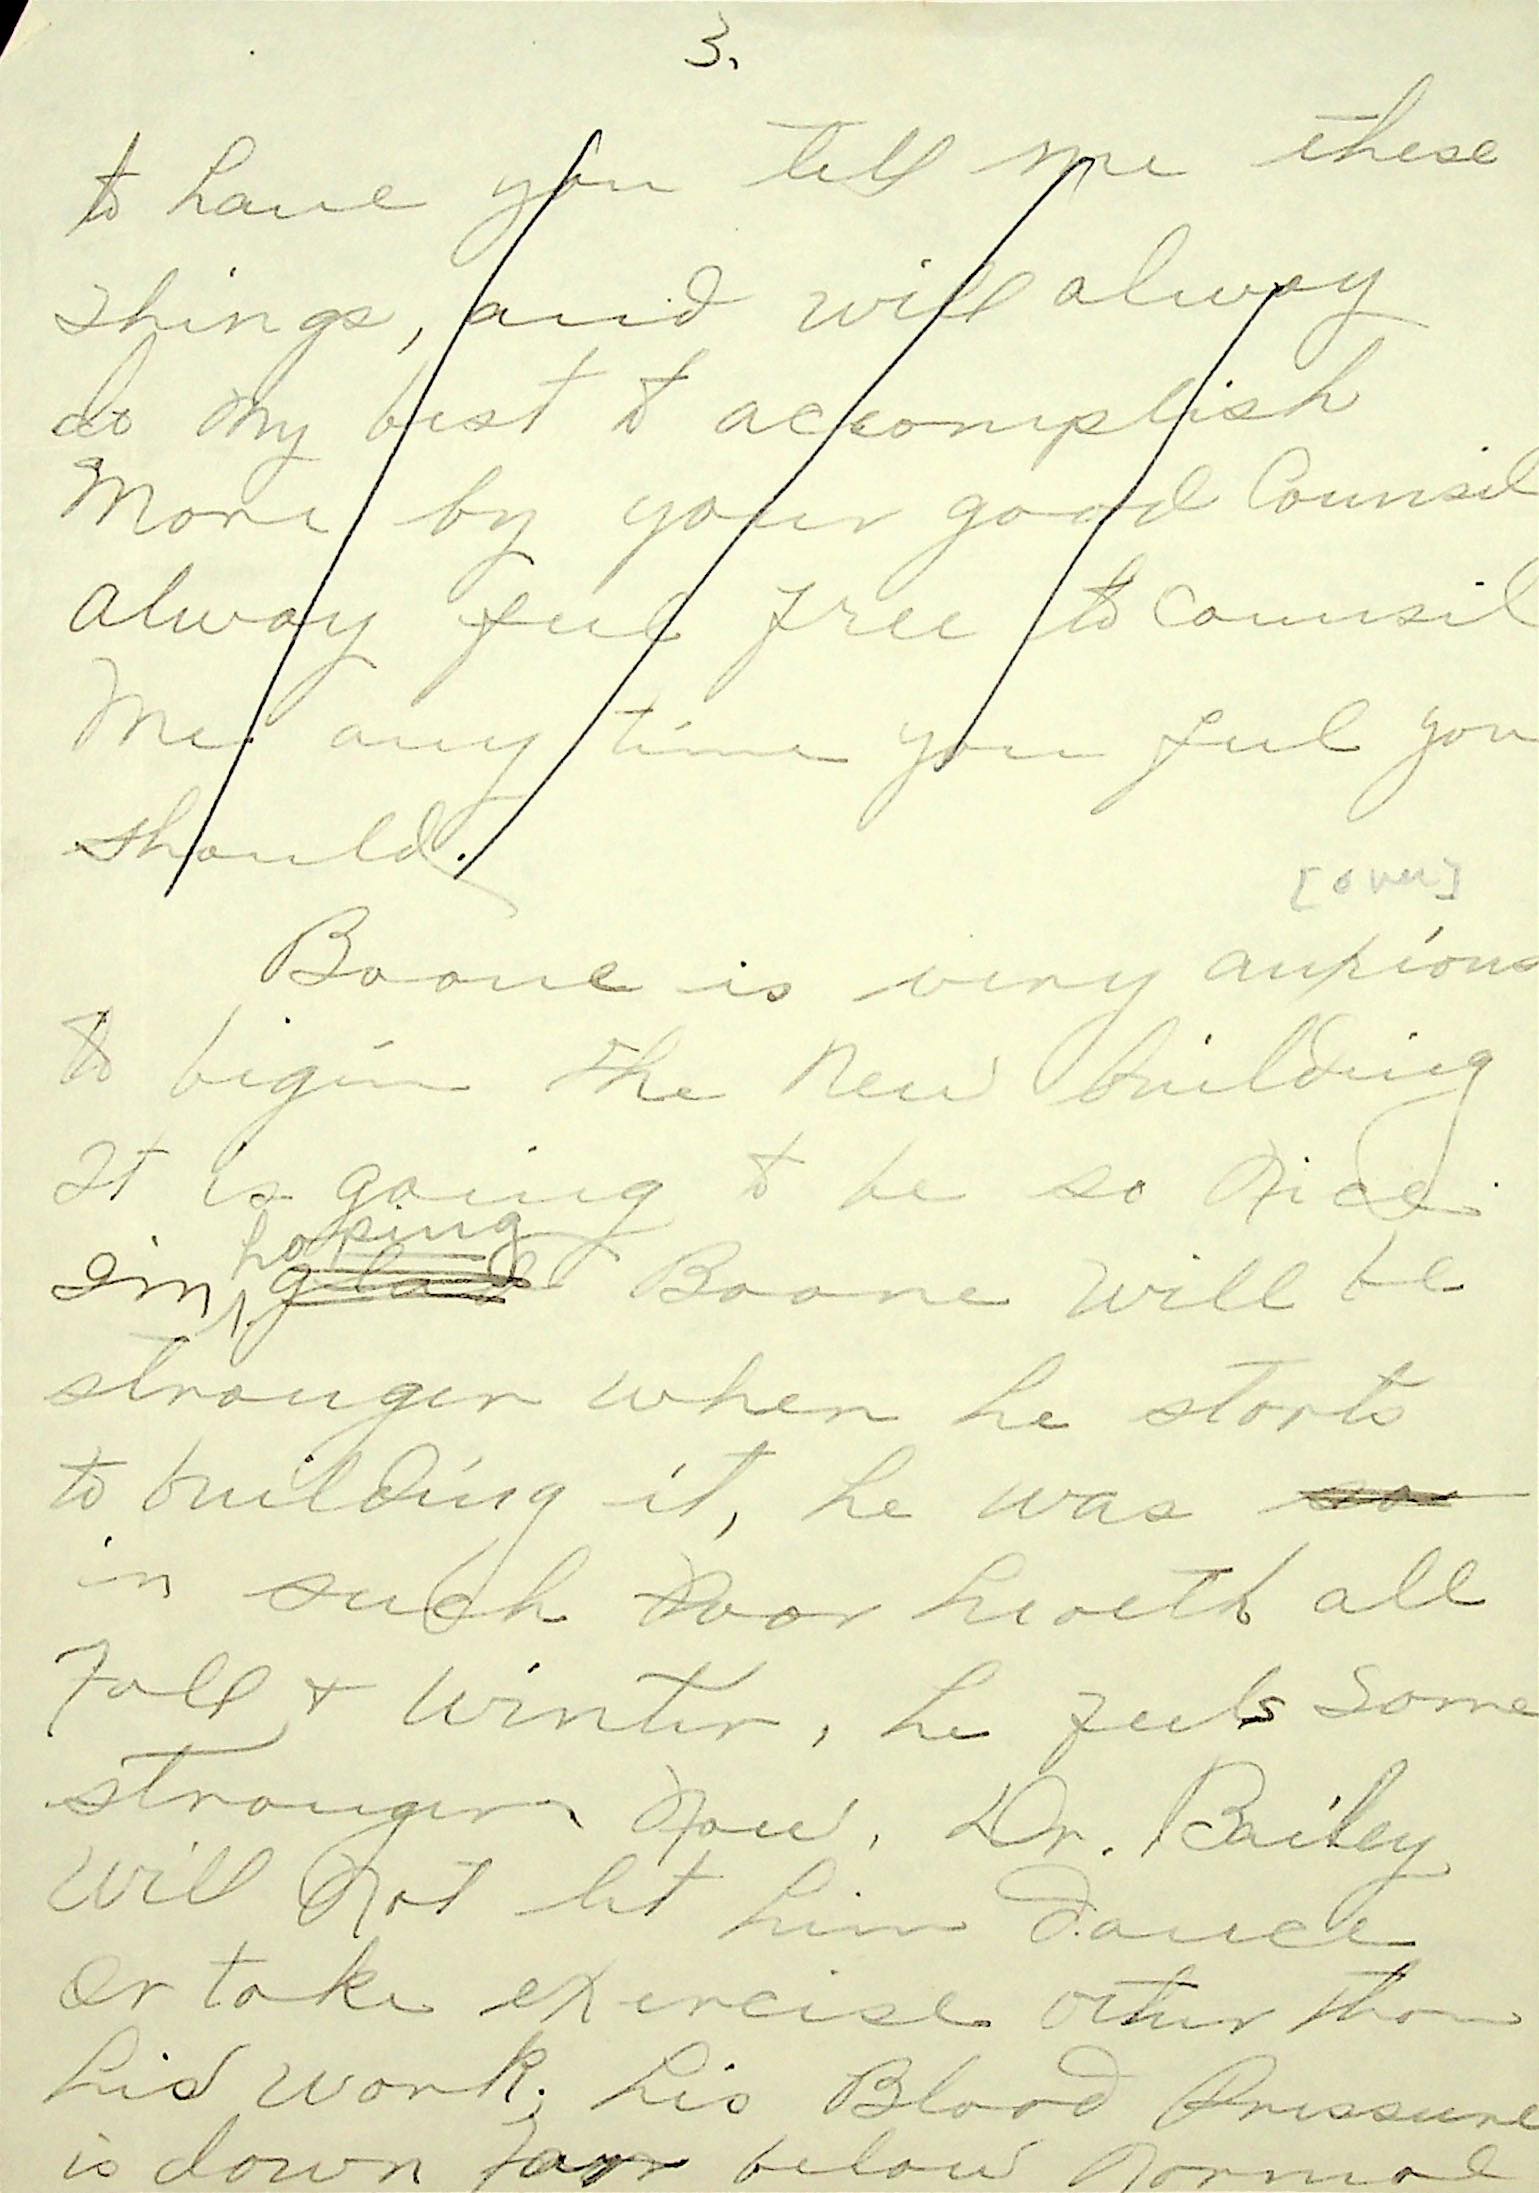 3.
to have you tell me these
things, and will alway
do my best to accomplish
More by your good Counsil
alway feel free to counsil
Me any time you feel you
should.
[over]
Boone is very anxious
to begin the New building
It is going to be so Nice.
hoping
I'm glad Boone will be
stronger when he starts
to building it, he was so
in such Poor health all
Fall & Winter, he feels Some
stronger Now, Dr. Bailey
Will Not let him dance
or take exercise other than
his work. his Blood Pressure
is down far below Normal